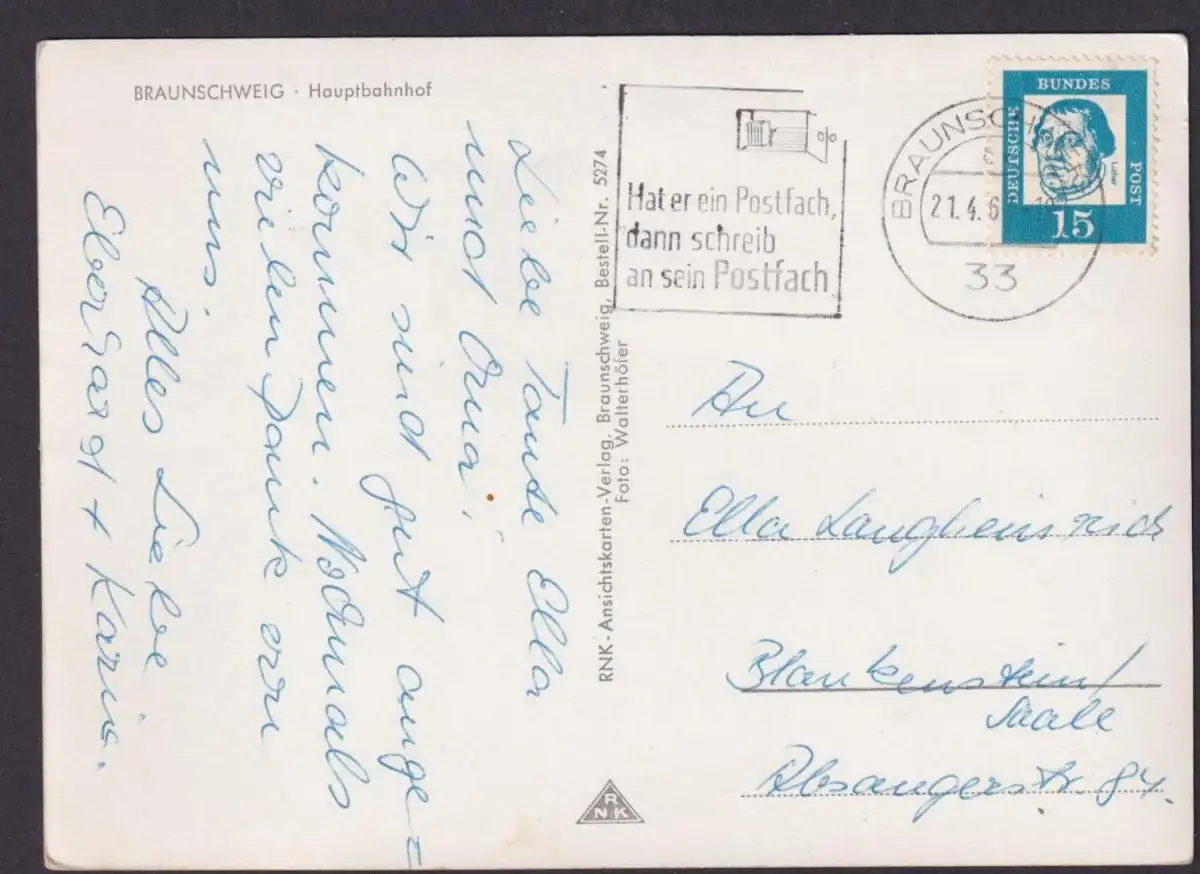 BRAUNSCHWEIG · Hauptbahnhof
Liebe Tante Ella
und Oma!
Wir sind gut ange=
kommen. Nochmals
vielen Dank von
uns.
Alles Liebe
Eberhardt + Karin.
RNK - Ansichtskarten-Verlag, Braunschweig, Bestell-Nr. 5274
Foto: Walterhöfer
RNK
Hat er ein Postfach,
dann schreib
an sein Postfach
BRAUNSCHWEIG
21.4.6
33
DEUTSCHE
BUNDES
POST
Luther
15
An
Ella Langheinrich
Blankenstein/
Saale
Absangerstr. 84.